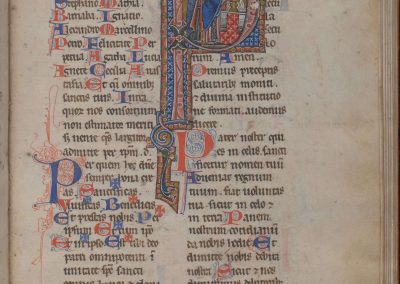 Stephano Mathia
Barnaba Ignatio
Alexandro Marcellino
Petro Felicitate Per
petua Agatha Lucia
Agnete Cecilia Ana
Et cum omnibus
sanctis tuis Intra
quor nos consortium
non estimator meriti
sed venie quesumus largitor
admitte per xpm d
Per quem hec omnia
semper bona cre
as Sanctificas
Vivificas Benedicis
Et prestas nobis Per
ipsum Et cum ipso
Et in ipso Est tibi deo
patri omnipotenti i
unitate spiritus sancti
rum Amen
Oremus preceptis
salutaribus moniti
et divina institutio
ne formati audemus
dicere
Pater noster qui
es in celis sancti
ficetur nomen tuum
Adveniat regnum
tuum fiat voluntas
tua sicut in celo et
in terra Panem
nostrum cotidianum
da nobis hodie Et
dimitte nobis debita
nostra Sicut et nos